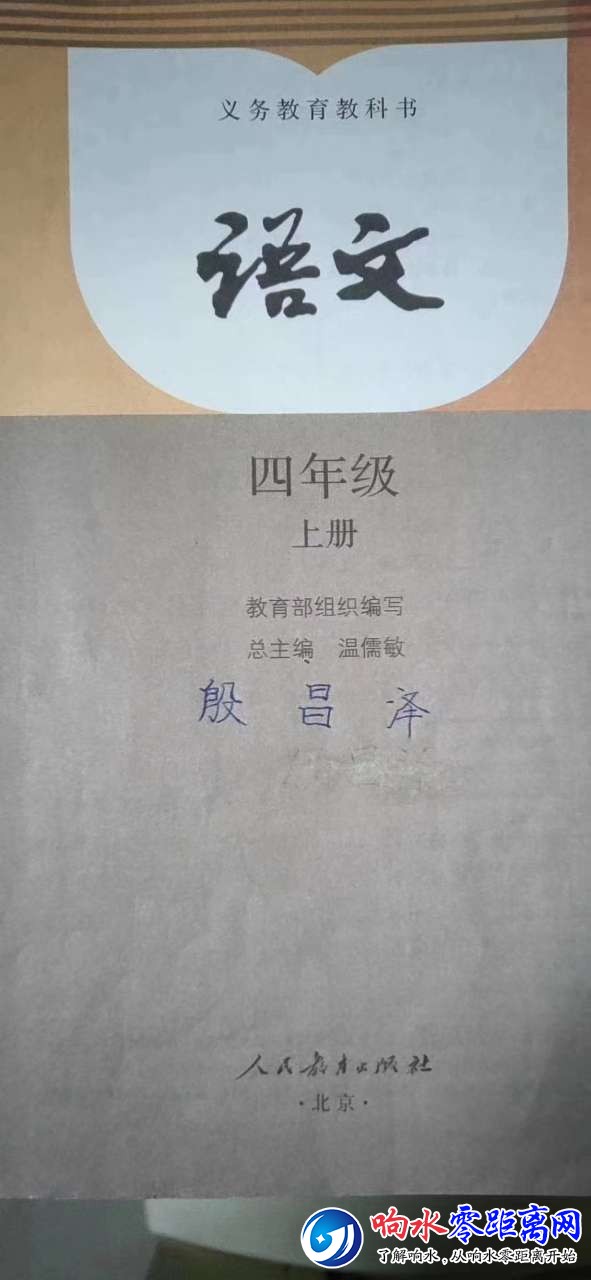 义务教育教科书
语文
四年级
上册
教育部组织编写
总主编 温儒敏
殷昌泽
人民教育出版社
·北京·
响水零距离网
了解响水，从响水零距离开始